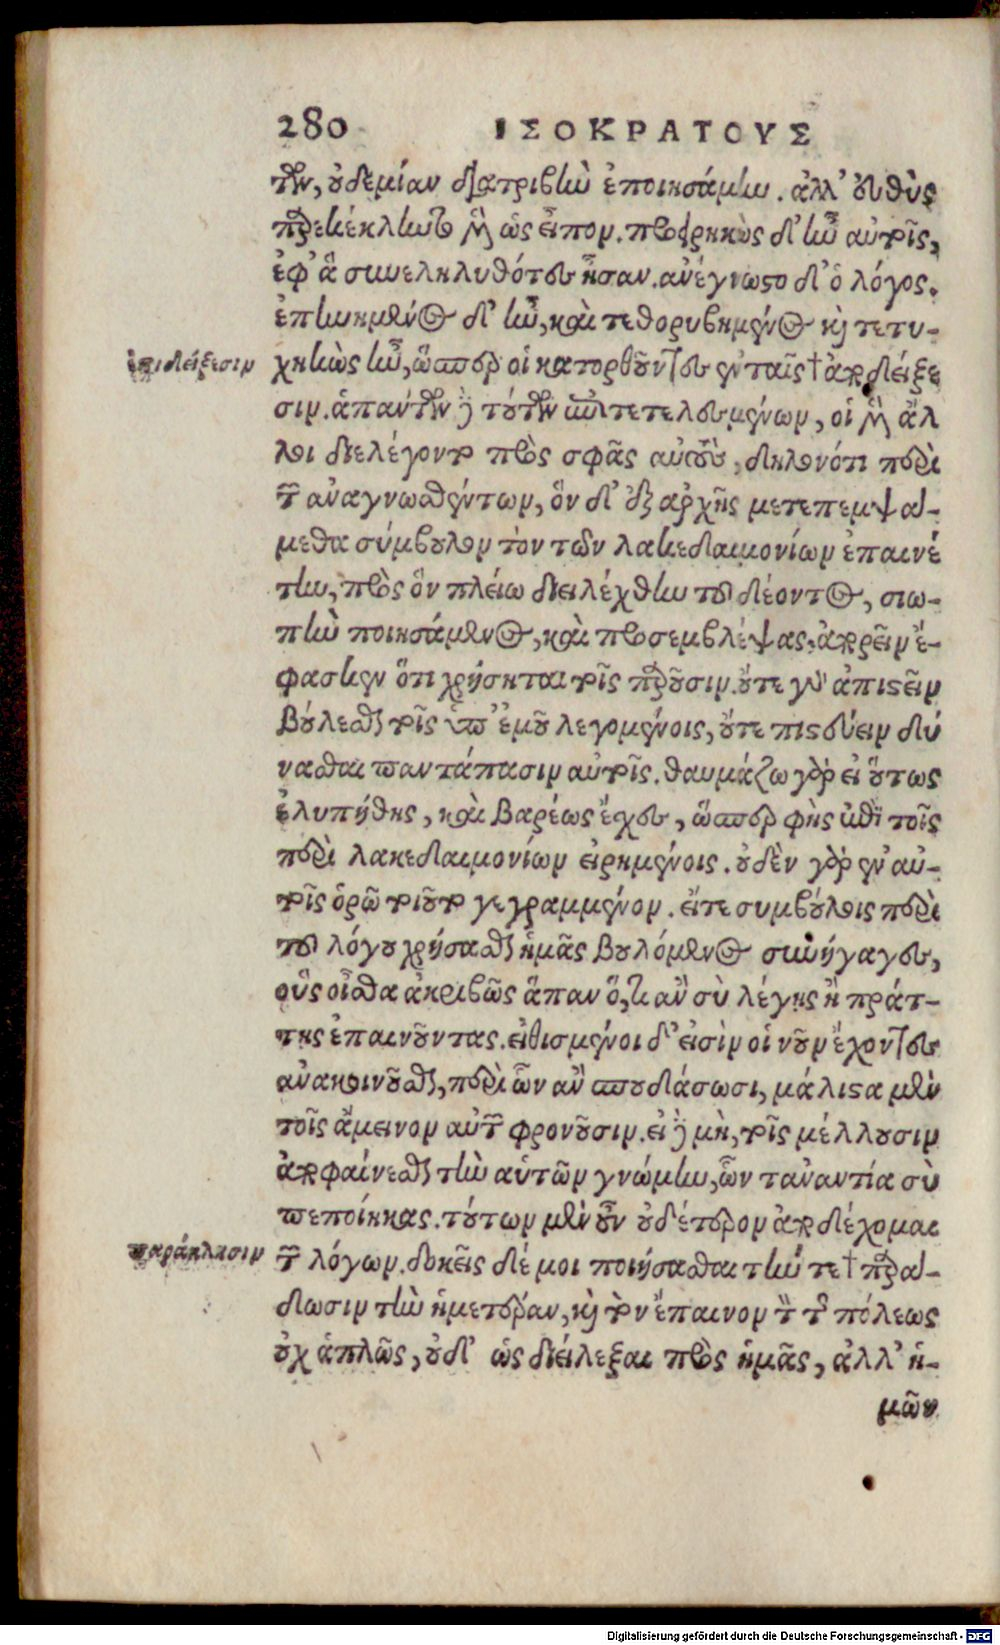 280 ΙΣΟΚΡΑΤΟΥΣ
των, οὐδεμίαν διατριβὴν ἐποιησάμην. ἀλλ' εὐθὺς
παρεκέκληντο μὲν ὡς εἶπον. προειρηκὼς δ' ἦν αὐτοῖς,
ἐφ' ἃ συνεληλυθότες ἦσαν. ἀνέγνωστο δ' ὁ λόγος.
ἐπῃνημένος δ' ἦν, καὶ τεθορυβημένος καὶ τετυ-
ἐπιδείξεσιν
χηκὼς ἦν, ὥσπερ οἱ κατορθοῦντες ἐν ταῖς † ἀποδείξε
σιν. ἁπάντων δὲ τούτων ἐπιτετελεσμένων, οἱ μὲν ἄλ
λοι διελέγοντο πρὸς σφᾶς αὐτοὺς, δηλονότι περὶ
τῶν ἀναγνωσθέντων, ὃν δ' ἐξ ἀρχῆς μετεπεμψά-
μεθα σύμβουλον τὸν τῶν λακεδαιμονίων ἐπαινέ
την, πρὸς ὃν πλείω διειλέχθην τοῦ δέοντος, σιω-
πὴν ποιησάμενος, καὶ προσεμβλέψας, ἀπορεῖν ἔ-
φασκεν ὅτι χρήσηται τοῖς παροῦσιν. οὔτε γὰρ ἀπιστεῖν
βούλεσθαι τοῖς ὑπ' ἐμοῦ λεγομένοις, οὔτε πιστεύειν δύ
νασθαι παντάπασιν αὐτοῖς. θαυμάζω γὰρ εἰ οὕτως
ἐλυπήθης, καὶ βαρέως ἔχεις, ὥσπερ φῂς ἐπὶ τοῖς
περὶ λακεδαιμονίων εἰρημένοις. οὐδὲν γὰρ ἐν αὐ-
τοῖς ὁρῶ τοιοῦτο γεγραμμένον. εἴτε συμβούλοις περὶ
τοῦ λόγου χρήσασθαι ἡμᾶς βουλόμενος συνήγαγες,
οὓς οἶσθα ἀκριβῶς ἅπαν ὅ,τι ἂν σὺ λέγῃς ἢ πράτ-
της ἐπαινοῦντας. εἰθισμένοι δ' εἰσὶν οἱ νοῦν ἔχοντες
ἀνακοινοῦσθαι, περὶ ὧν ἂν σπουδάσωσι, μάλιστα μὲν
τοῖς ἄμεινον αὐτῶν φρονοῦσιν. εἰ δὲ μὴ, τοῖς μέλλουσιν
ἀποφαίνεσθαι τὴν αὑτῶν γνώμην, ὧν τἀναντία σὺ
πεποίηκας. τούτων μὲν οὖν οὐδέτερον ἀποδέχομαι
παράκλησιν
τῶν λόγων. δοκεῖς δέ μοι ποιήσασθαι τήν τε † παρά-
δωσιν τὴν ἡμετέραν, καὶ τὸν ἔπαινον τὸν τῆς πόλεως
οὐχ ἁπλῶς, οὐδ' ὡς διείλεξαι πρὸς ἡμᾶς, ἀλλ' ἡ-
μῶν
Digitalisierung gefördert durch die Deutsche Forschungsgemeinschaft - DFG